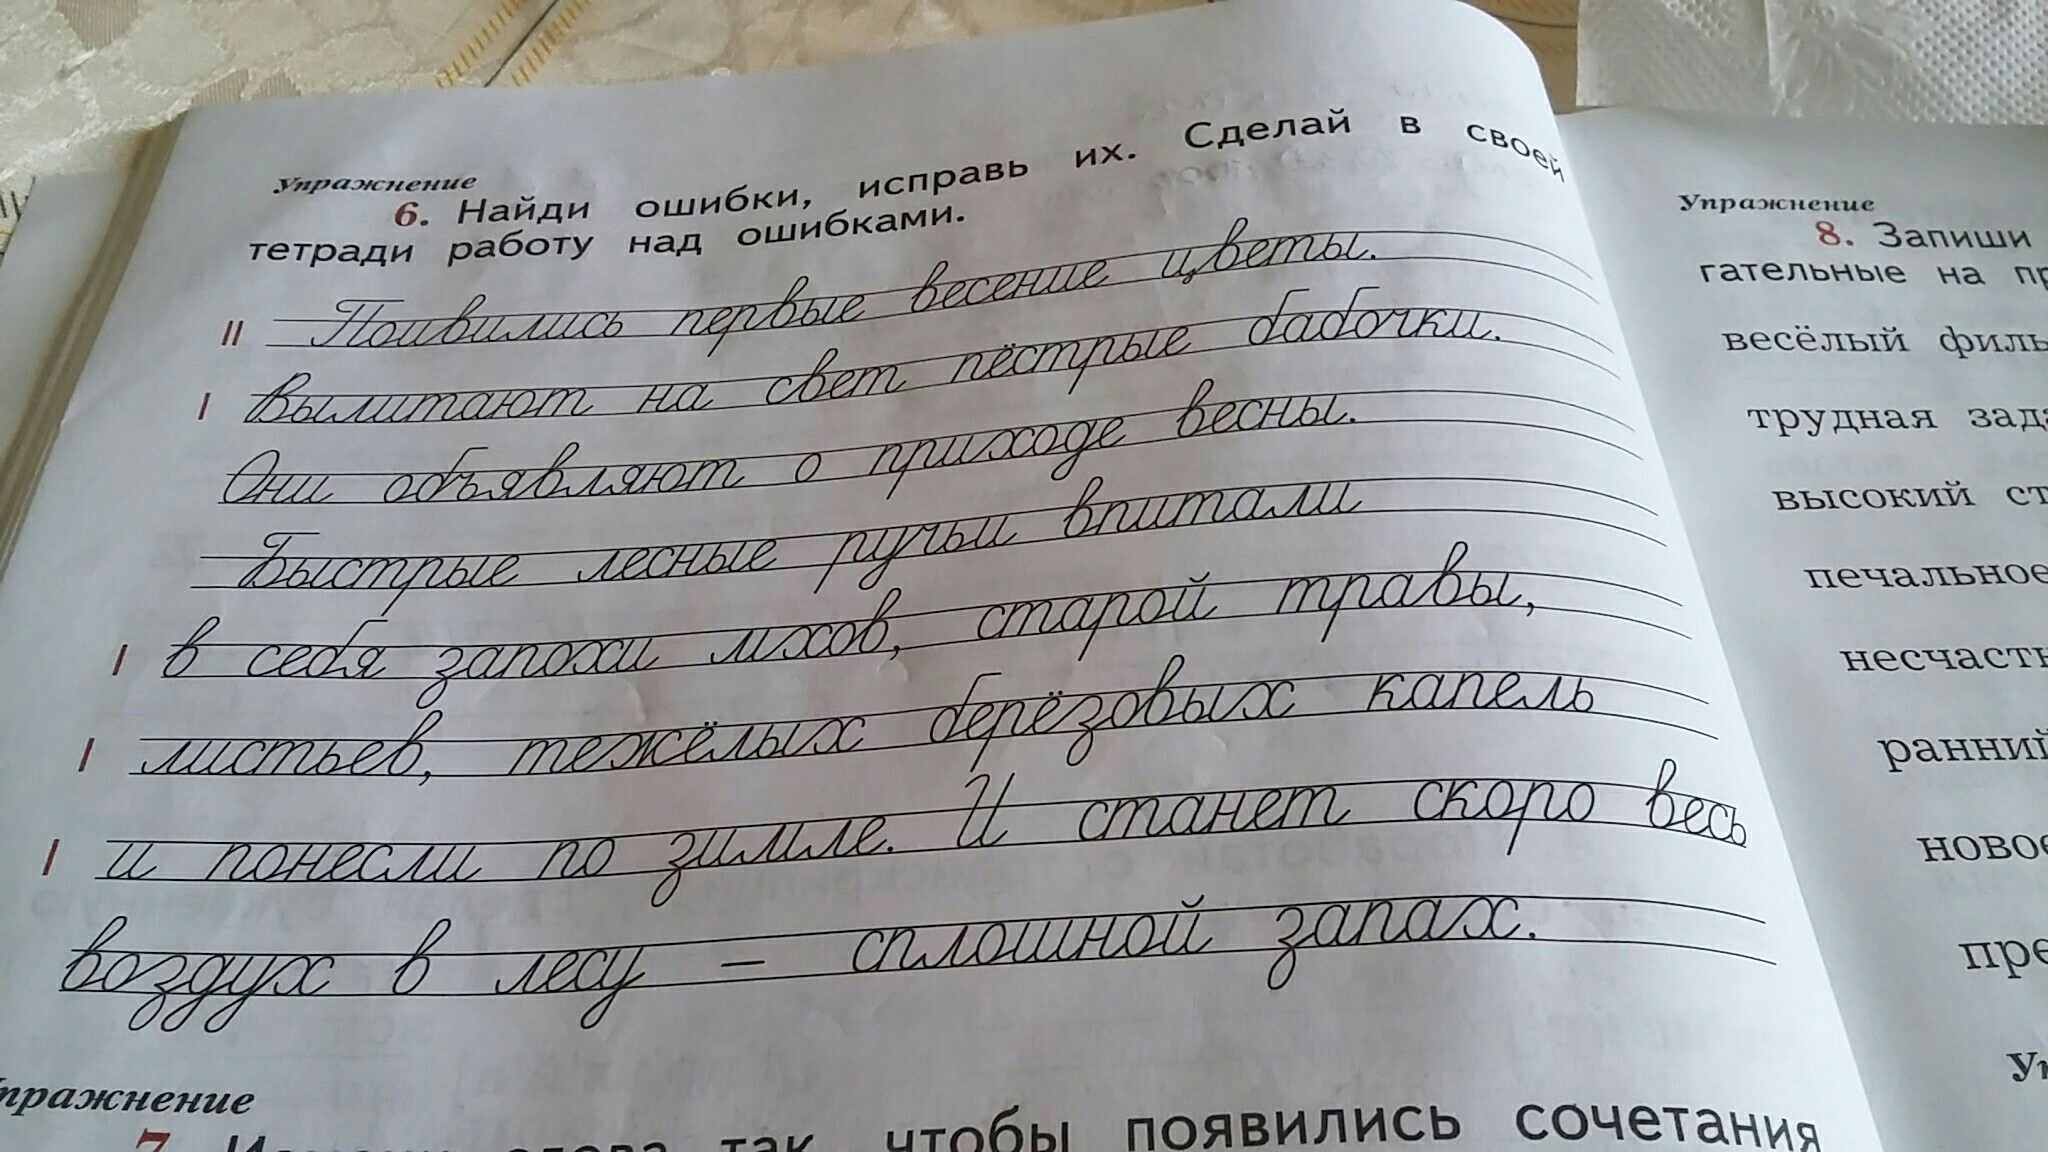 Упражнение
6. Найди ошибки, исправь их. Сделай в своей
тетради работу над ошибками.
II Поивились первые весение цветы.
I Вылитают на свет пёстрые бабочки.
Они объявляют о приходе весны.
Быстрые лесные ручьи впитали
I в себя запохи мхов, старой травы,
I листьев, тежёлых берёзовых капель
I и понесли по зимле. И станет скоро весь
воздух в лесу – сплошной запах.
Упражнение
7. слова так, чтобы появились сочетания
Упражнение
8. Запиши
гательные на
весёлый
трудная
высокий
печальное
ранний
новое